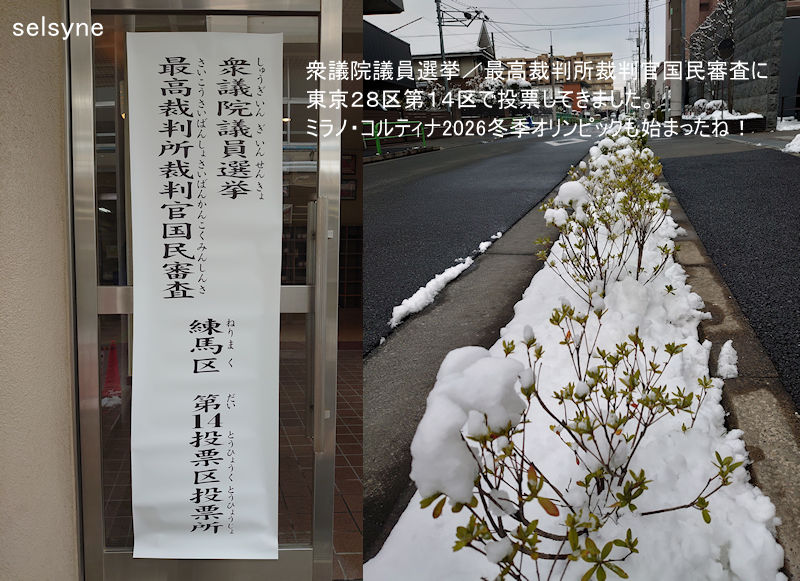 selsyne
衆議院議員選挙／最高裁判所裁判官国民審査に
東京２８区第１４区で投票してきました。
ミラノ・コルティナ2026冬季オリンピックも始まったね！
しゅうぎいんぎいんせんきょ
衆議院議員選挙
さいこうさいばんしょさいばんかんこくみんしんさ
最高裁判所裁判官国民審査
ねりまく
練馬区
だい とうひょうく とうひょうじょ
第14投票区投票所